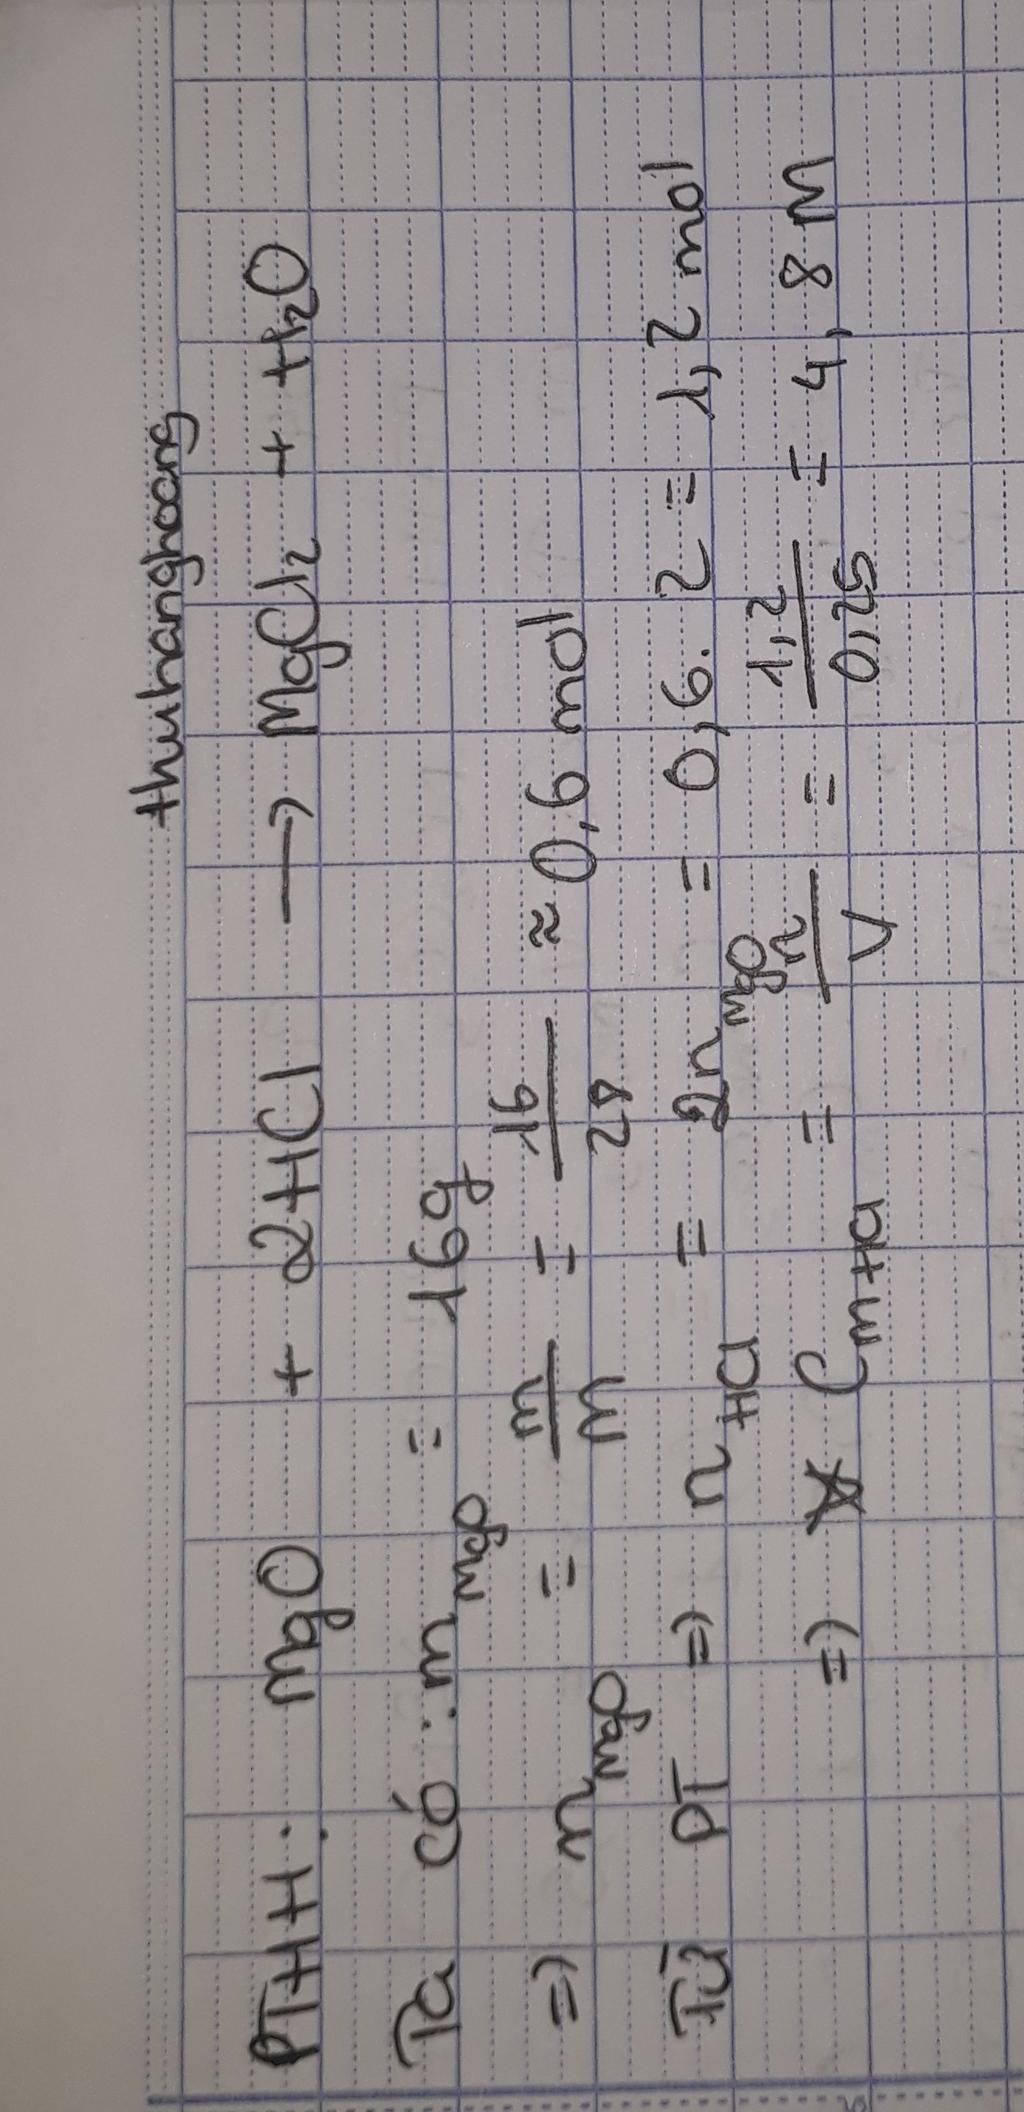 thuhanghoang
PTHH: MgO + 2HCl → MgCl2 + H2O
Ta có: mMgO = 16g
=) nMgO = m/M = 16/28 ≈ 0,6 mol
Từ pt =) nHCl = 2nMgO = 0,6.2 = 1,2 mol
=) CMHCl = n/V = 1,2/0,25 = 4,8 M